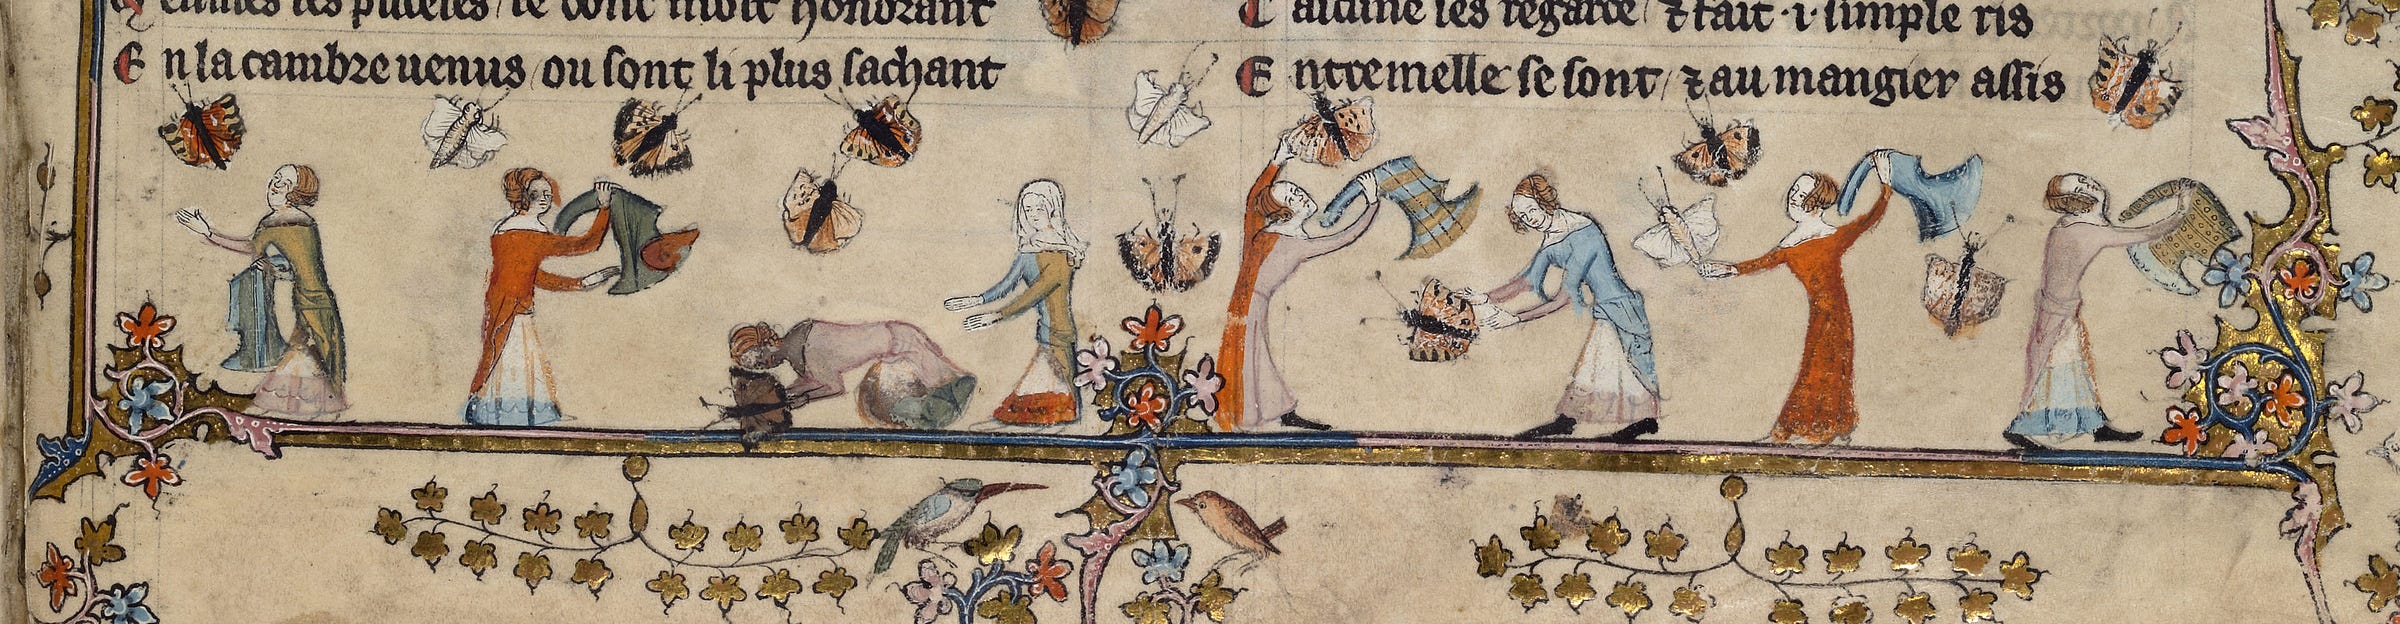 les puceles / honorant
En la cambre uenus / ou sont li plus sachant
les regarde / ⁊ fait ·i· simple ris
Entremelle se sont / ⁊ au mangier assis